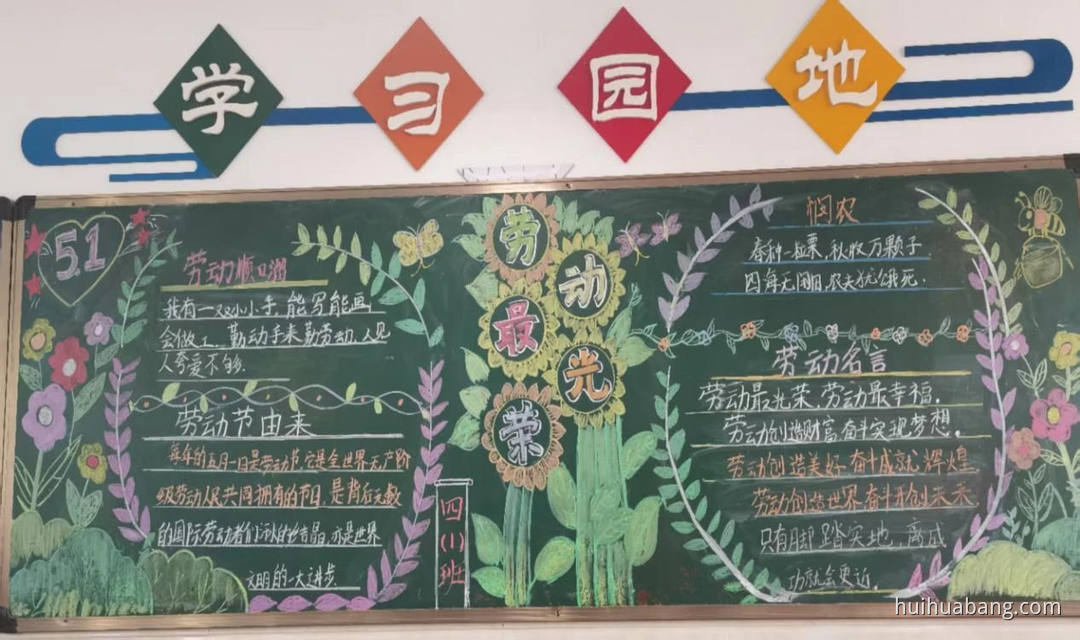 学习园地
51
劳动顺口溜
我有一双小小手,能写能画
会做工,勤动手来勤劳动,人见
人夸爱不够.
劳动节由来
每年的五月一日是劳动节,它是全世界无产阶
级劳动人民共同拥有的节日,是背后无数
的国际劳动者们的结晶,亦是世界
文明的一大进步.
劳动最光荣
四(1)班
悯农
春种一粒粟,秋收万颗子
四海无闲田,农夫犹饿死.
劳动名言
劳动最光荣,劳动最幸福.
劳动创造财富,奋斗实现梦想.
劳动创造美好 奋斗成就辉煌
劳动创造世界 奋斗开创未来
只有脚踏实地,离成
功就会更近.
huihuabang.com